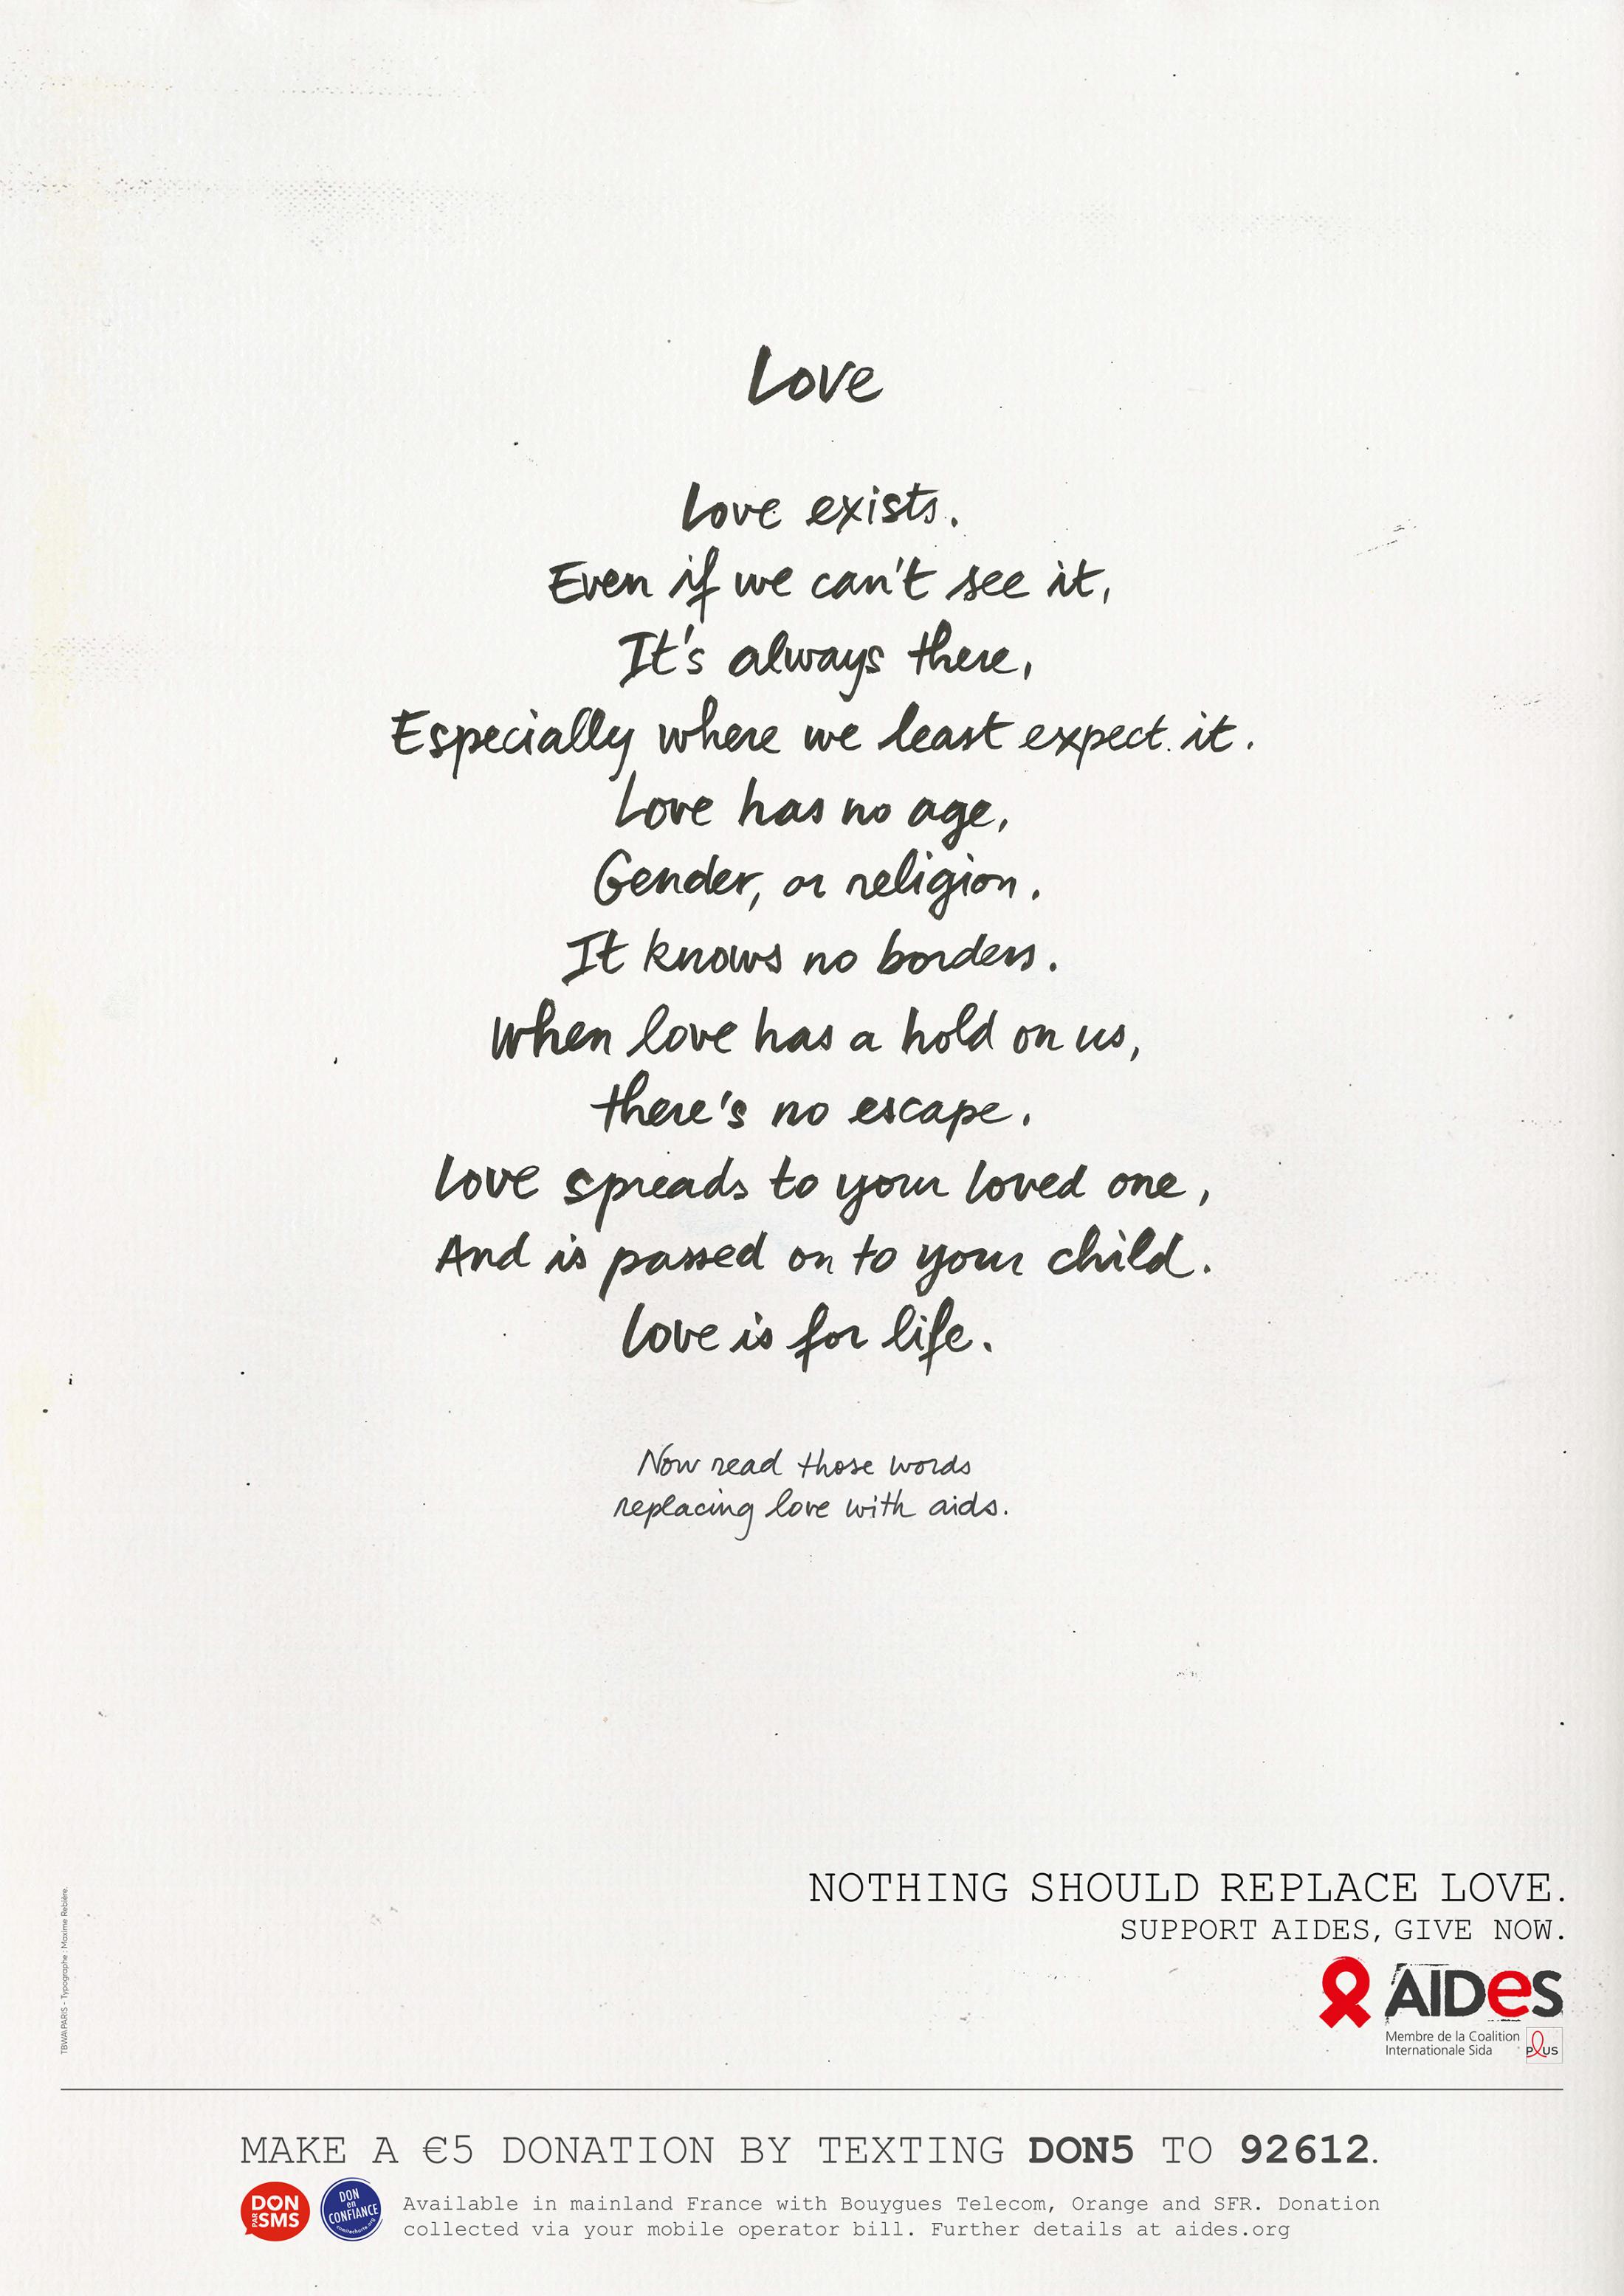 Love
Love exists.
Even if we can't see it,
It's always there,
Especially where we least expect it.
Love has no age,
Gender, or religion.
It knows no borders.
When love has a hold on us,
there's no escape.
Love spreads to your loved one,
And is passed on to your child.
Love is for life.
Now read those words
replacing love with aids.
NOTHING SHOULD REPLACE LOVE.
SUPPORT AIDES, GIVE NOW.
AIDeS
Membre de la Coalition
Internationale Sida
PLUS
TBWA\PARIS - Typographe : Maxime Rebière.
MAKE A €5 DONATION BY TEXTING DON5 TO 92612.
DON
PAR SMS
DON
en
CONFIANCE
Available in mainland France with Bouygues Telecom, Orange and SFR. Donation
collected via your mobile operator bill. Further details at aides.org